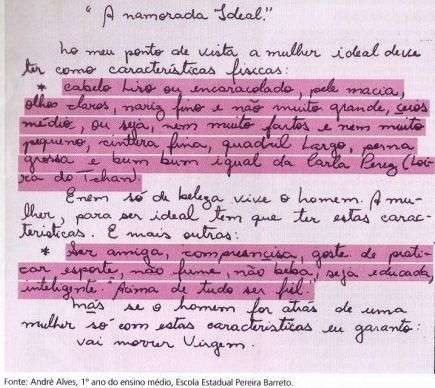 "A namorada Ideal."
No meu ponto de vista a mulher ideal deve
ter como características físicas:
* cabelo liro ou encaracolado, pele macia,
olhos claros, nariz fino e não muito grande, ceios
médio, ou seja, nem muito fartos e nem muito
pequeno, cintura fina, quadril largo, perna
grossa e bum bum igual da Carla Perez (Loi-
ra do Tchan)
E nem só de beleza vive o homem. A mu-
lher, para ser ideal tem que ter estas carac-
terísticas. E mais outras:
* Ser amiga, compreensiva, goste de prati-
car esporte, não fume, não beba, seja educada,
inteligente. "Acima de tudo ser fiel."
Mas se o homem for atrás de uma
mulher só com estas características eu garanto:
vai morrer Virgem.
Fonte: André Alves, 1º ano do ensino médio, Escola Estadual Pereira Barreto.